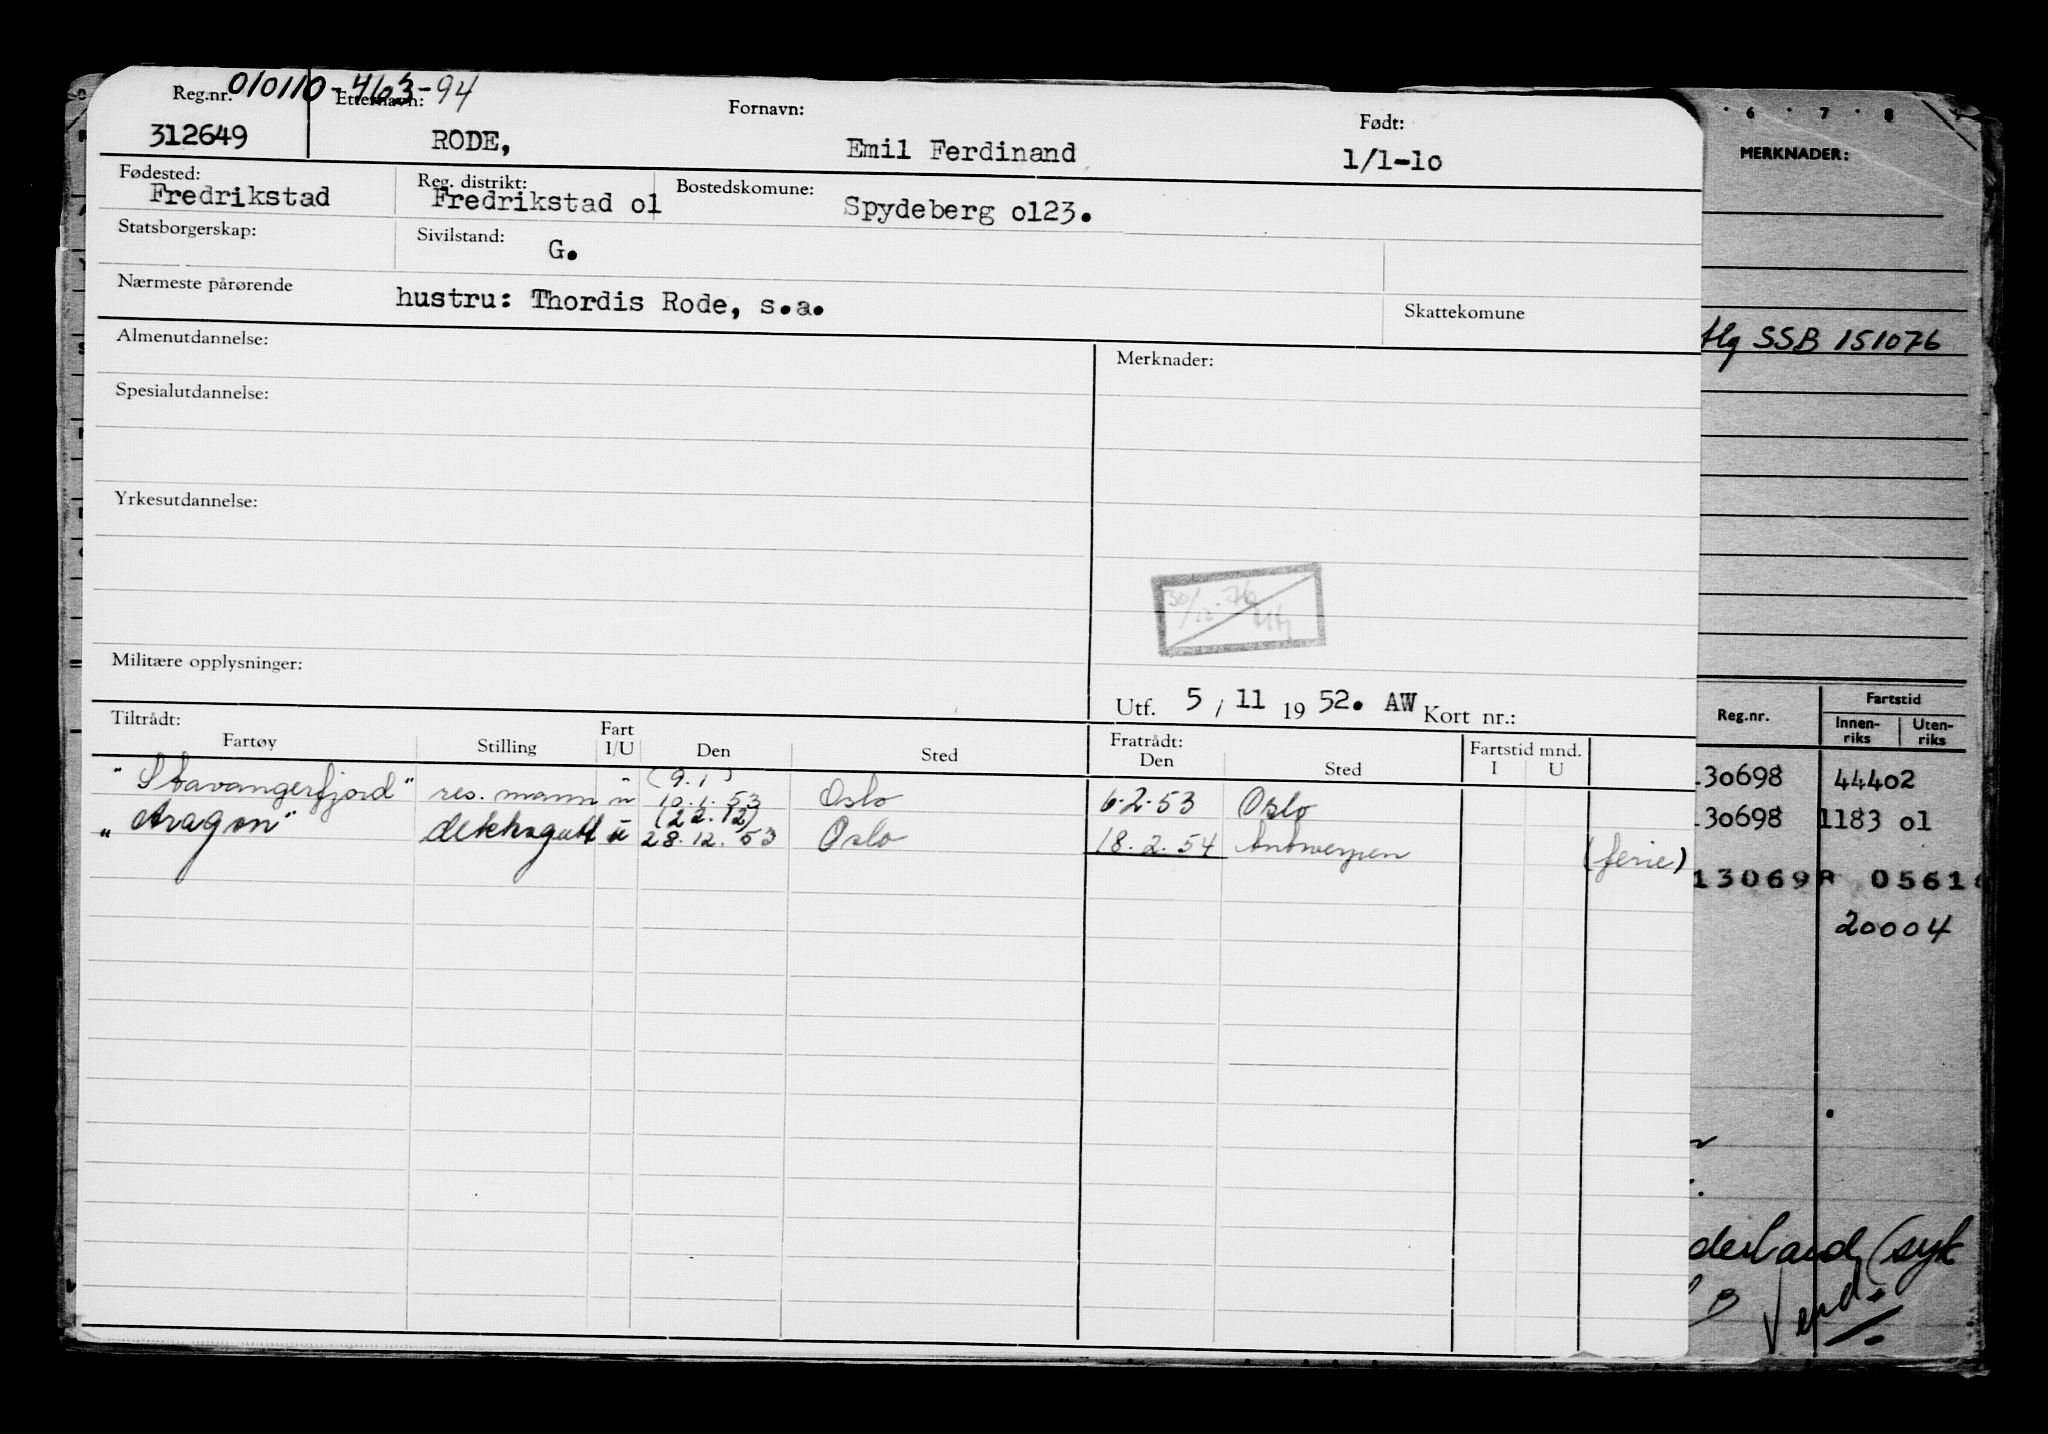 010110-463-94
Reg.nr. Etternavn: Fornavn: Født:
312649 RODE, Emil Ferdinand 1/1-1o
Fødested: Reg. distrikt: Bostedskomune:
Fredrikstad Fredrikstad o1 Spydeberg o123.
Statsborgerskap: Sivilstand: G.
Nærmeste pårørende hustru: Thordis Rode, s.a. Skattekomune
Almenutdannelse: Merknader:
Spesialutdannelse:
Yrkesutdannelse:
Militære opplysninger:
Utf. 5 / 11 19 52. AW Kort nr.:
Tiltrådt: Fratrådt:
Fartøy Stilling Fart I/U Den Sted Den Sted Fartstid mnd. I U
(9.1)
"Stavangerfjord" res. mann u 10.1.53 Oslo 6.2.53 Oslo
(22.12)
"Aragon" dekksgutt u 28.12.53 Oslo 18.2.54 Antwerpen (ferie)
6 7 8
MERKNADER:
SSB 151076
Reg.nr. Fartstid
Innen-riks Uten-riks
130698 44402
130698 1183 o1
130698 0561
20004
derland (syk
B Vend.